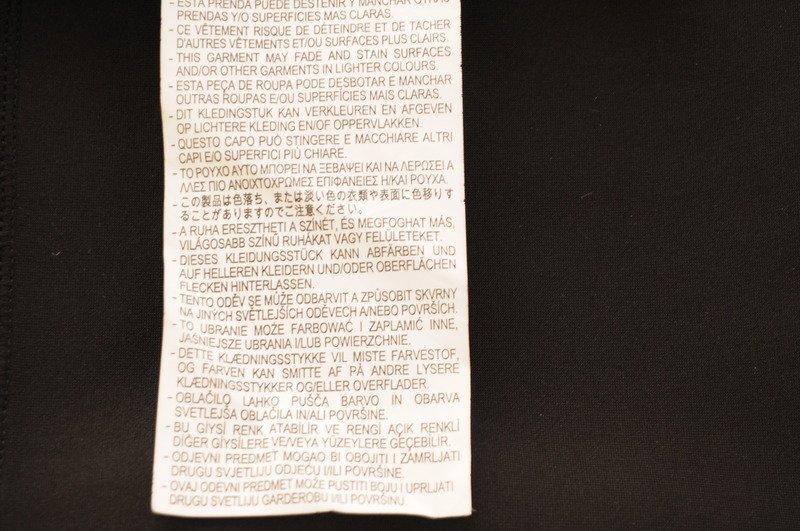 - ESTA PRENDA PUEDE DESTEÑIR Y MANCHAR OTRAS
PRENDAS Y/O SUPERFICIES MAS CLARAS.
- CE VÊTEMENT RISQUE DE DÉTEINDRE ET DE TACHER
D'AUTRES VÊTEMENTS ET/OU SURFACES PLUS CLAIRS.
- THIS GARMENT MAY FADE AND STAIN SURFACES
AND/OR OTHER GARMENTS IN LIGHTER COLOURS.
- ESTA PEÇA DE ROUPA PODE DESBOTAR E MANCHAR
OUTRAS ROUPAS E/OU SUPERFÍCIES MAIS CLARAS.
- DIT KLEDINGSTUK KAN VERKLEUREN EN AFGEVEN
OP LICHTERE KLEDING EN/OF OPPERVLAKKEN.
- QUESTO CAPO PUÒ STINGERE E MACCHIARE ALTRI
CAPI E/O SUPERFICI PIÙ CHIARE.
- ΤΟ ΡΟΥΧΟ ΑΥΤΟ ΜΠΟΡΕΙ ΝΑ ΞΕΒΑΨΕΙ ΚΑΙ ΝΑ ΛΕΡΩΣΕΙ Α
ΛΛΕΣ ΠΙΟ ΑΝΟΙΧΤΟΧΡΩΜΕΣ ΕΠΙΦΑΝΕΙΕΣ Η/ΚΑΙ ΡΟΥΧΑ.
- この製品は色落ち、または淡い色の衣類や表面に色移りす
ることがありますのでご注意ください。
- A RUHA ERESZTHETI A SZÍNÉT, ÉS MEGFOGHAT MÁS,
VILÁGOSABB SZÍNŰ RUHÁKAT VAGY FELÜLETEKET.
- DIESES KLEIDUNGSSTÜCK KANN ABFÄRBEN UND
AUF HELLEREN KLEIDERN UND/ODER OBERFLÄCHEN
FLECKEN HINTERLASSEN.
- TENTO ODĚV SE MŮŽE ODBARVIT A ZPŮSOBIT SKVRNY
NA JINÝCH SVĚTLEJŠÍCH ODĚVECH A/NEBO POVRŠÍCH.
- TO UBRANIE MOŻE FARBOWAĆ I ZAPLAMIĆ INNE,
JAŚNIEJSZE UBRANIA I/LUB POWIERZCHNIE.
- DETTE KLÆDNINGSSTYKKE VIL MISTE FARVESTOF,
OG FARVEN KAN SMITTE AF PÅ ANDRE LYSERE
KLÆDNINGSSTYKKER OG/ELLER OVERFLADER.
- OBLAČILO LAHKO PUŠČA BARVO IN OBARVA
SVETLEJŠA OBLAČILA IN/ALI POVRŠINE.
- BU GİYSİ RENK ATABİLİR VE RENGİ AÇIK RENKLİ
DİĞER GİYSİLERE VE/VEYA YÜZEYLERE GEÇEBİLİR.
- ODJEVNI PREDMET MOGAO BI OBOJITI I ZAMRLJATI
DRUGU SVJETLIJU ODJEĆU I/ILI POVRŠINE.
- OVAJ ODEVNI PREDMET MOŽE PUSTITI BOJU I UPRLJATI
DRUGU SVETLIJU GARDEROBU I/ILI POVRŠINU.